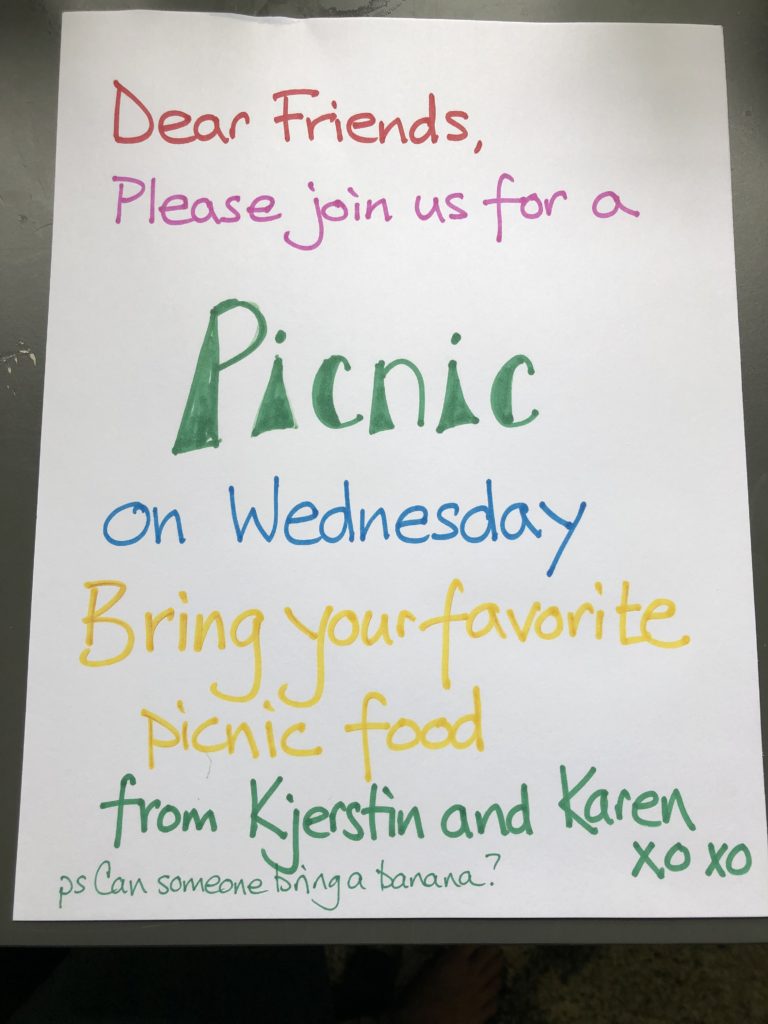 Dear Friends,
Please join us for a
Picnic
on Wednesday
Bring your favorite
picnic food
from Kjerstin and Karen
xo xo
ps Can someone bring a banana?